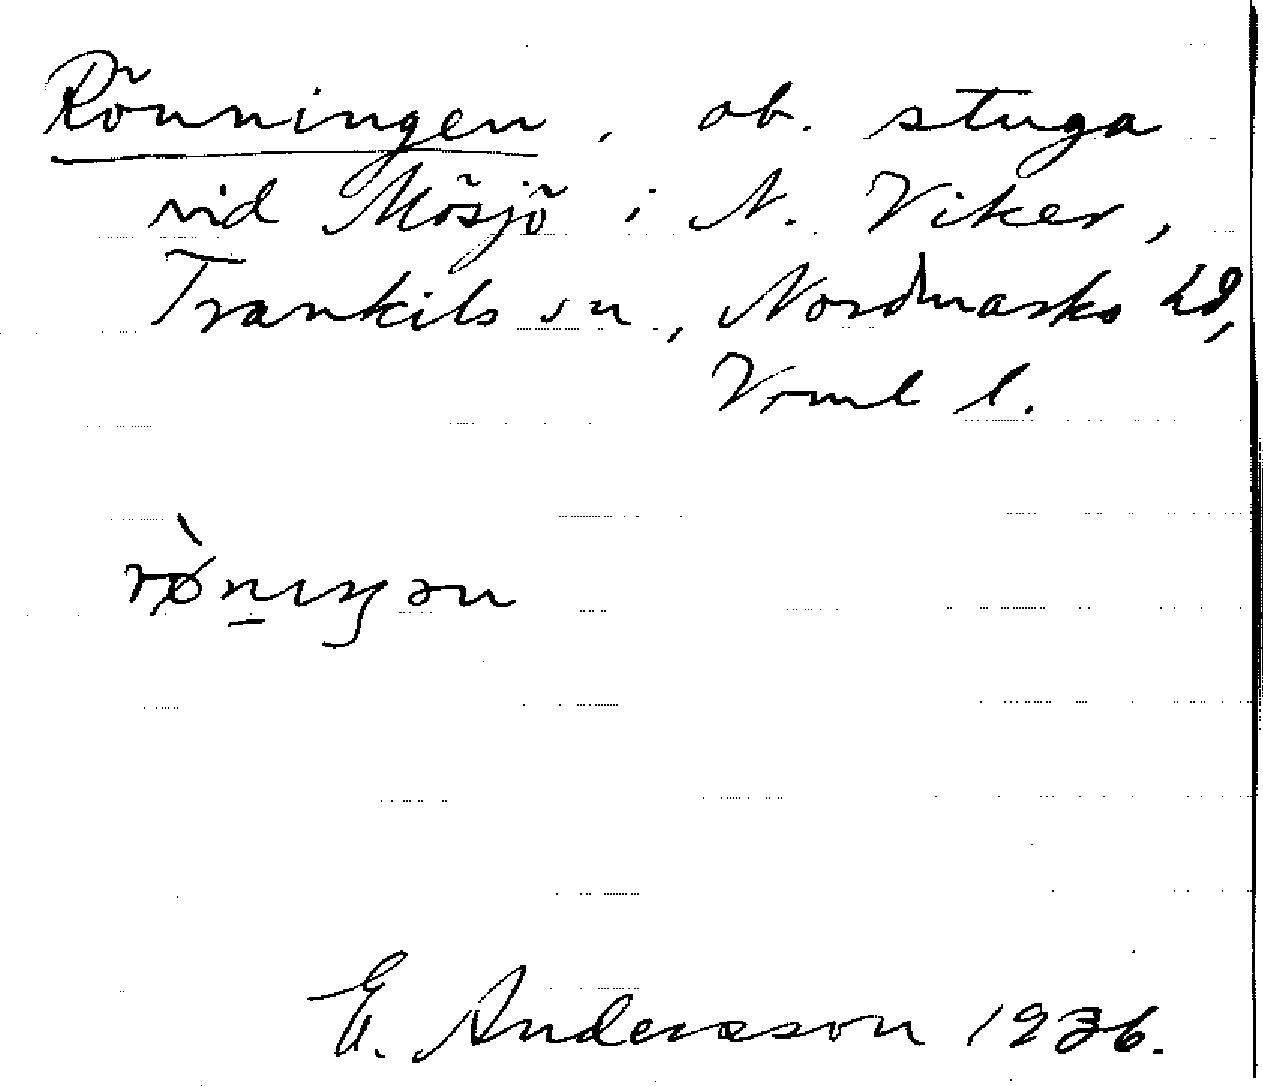 Rönningen, ob. stuga
vid Mösjö i N. Viker,
Trankils sn, Nordmarks hd,
Vrml l.
E. Andersson 1936.